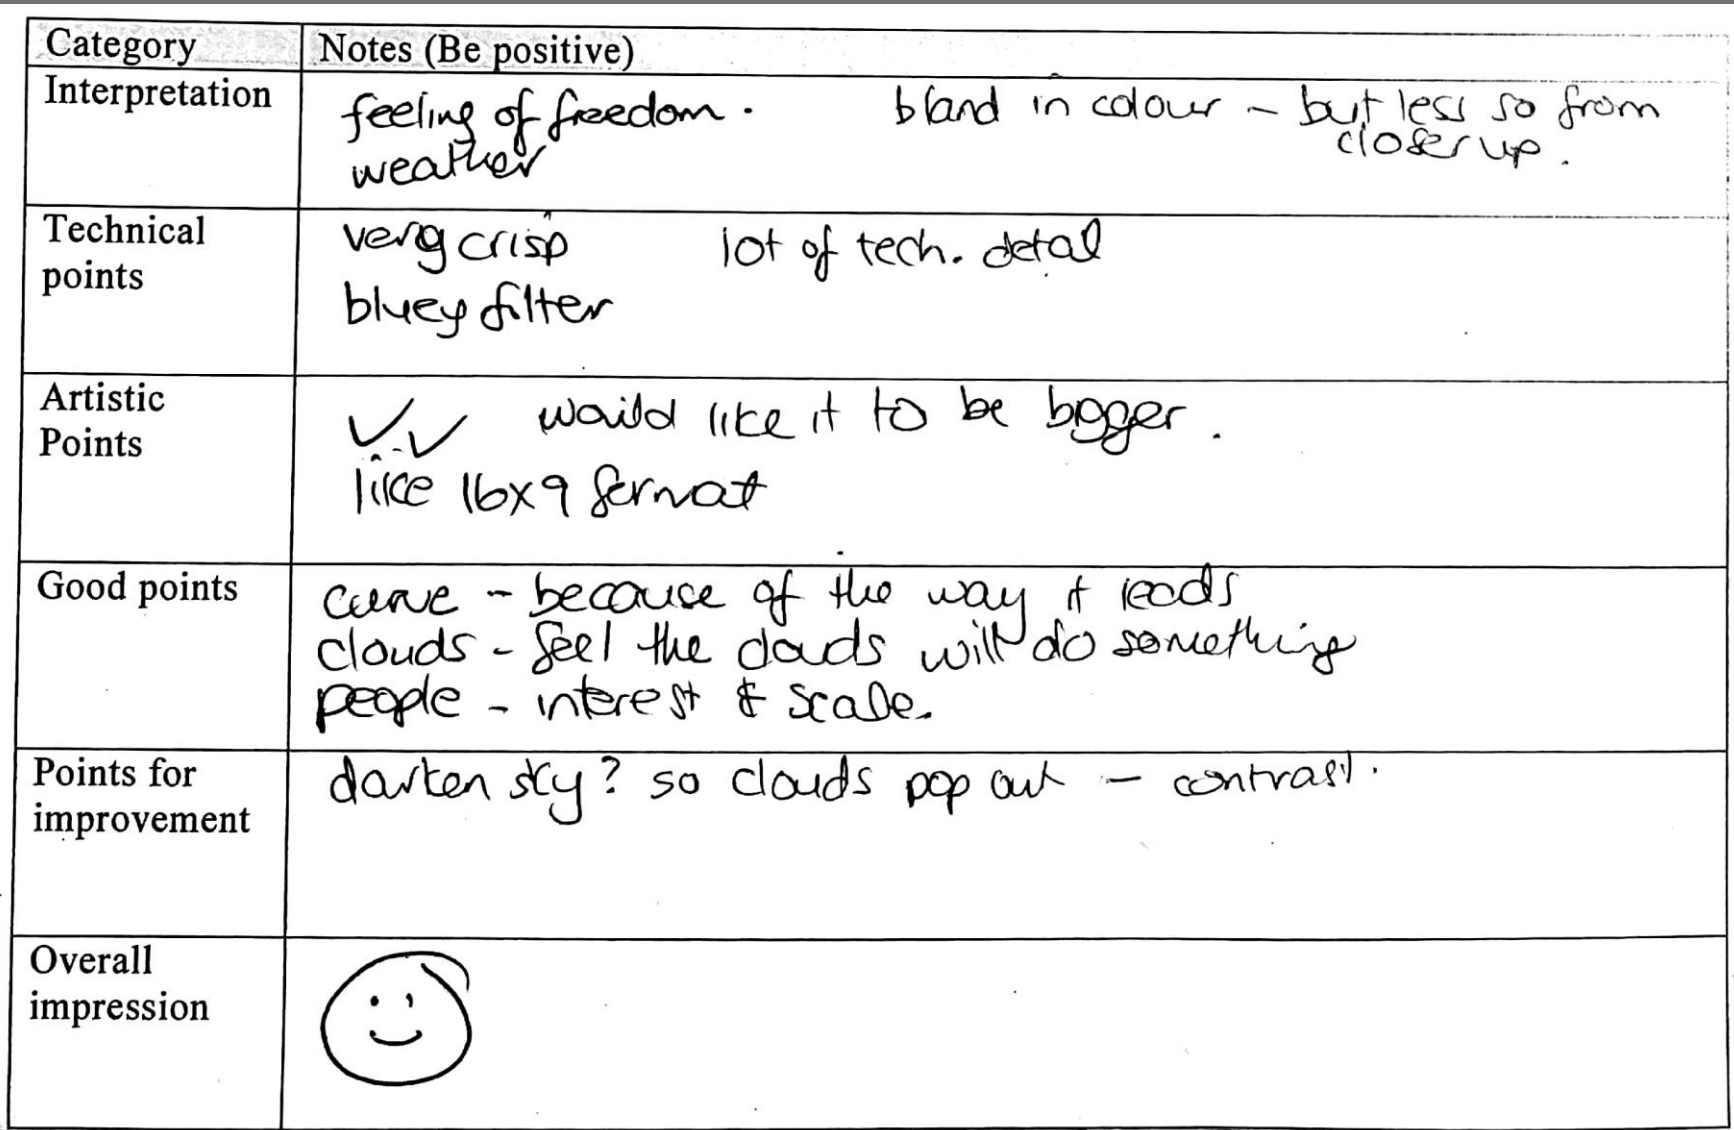 Category Notes (Be positive)
Interpretation feeling of freedom. bland in colour - but less so from
weather closer up.
Technical very crisp lot of tech. detal
points bluey filter
Artistic ✓✓ would like it to be bigger.
Points like 16x9 format
Good points curve - because of the way it leads
clouds - feel the clouds will do something
people - interest & scale.
Points for darken sky? so clouds pop out - contrast.
improvement
Overall
impression